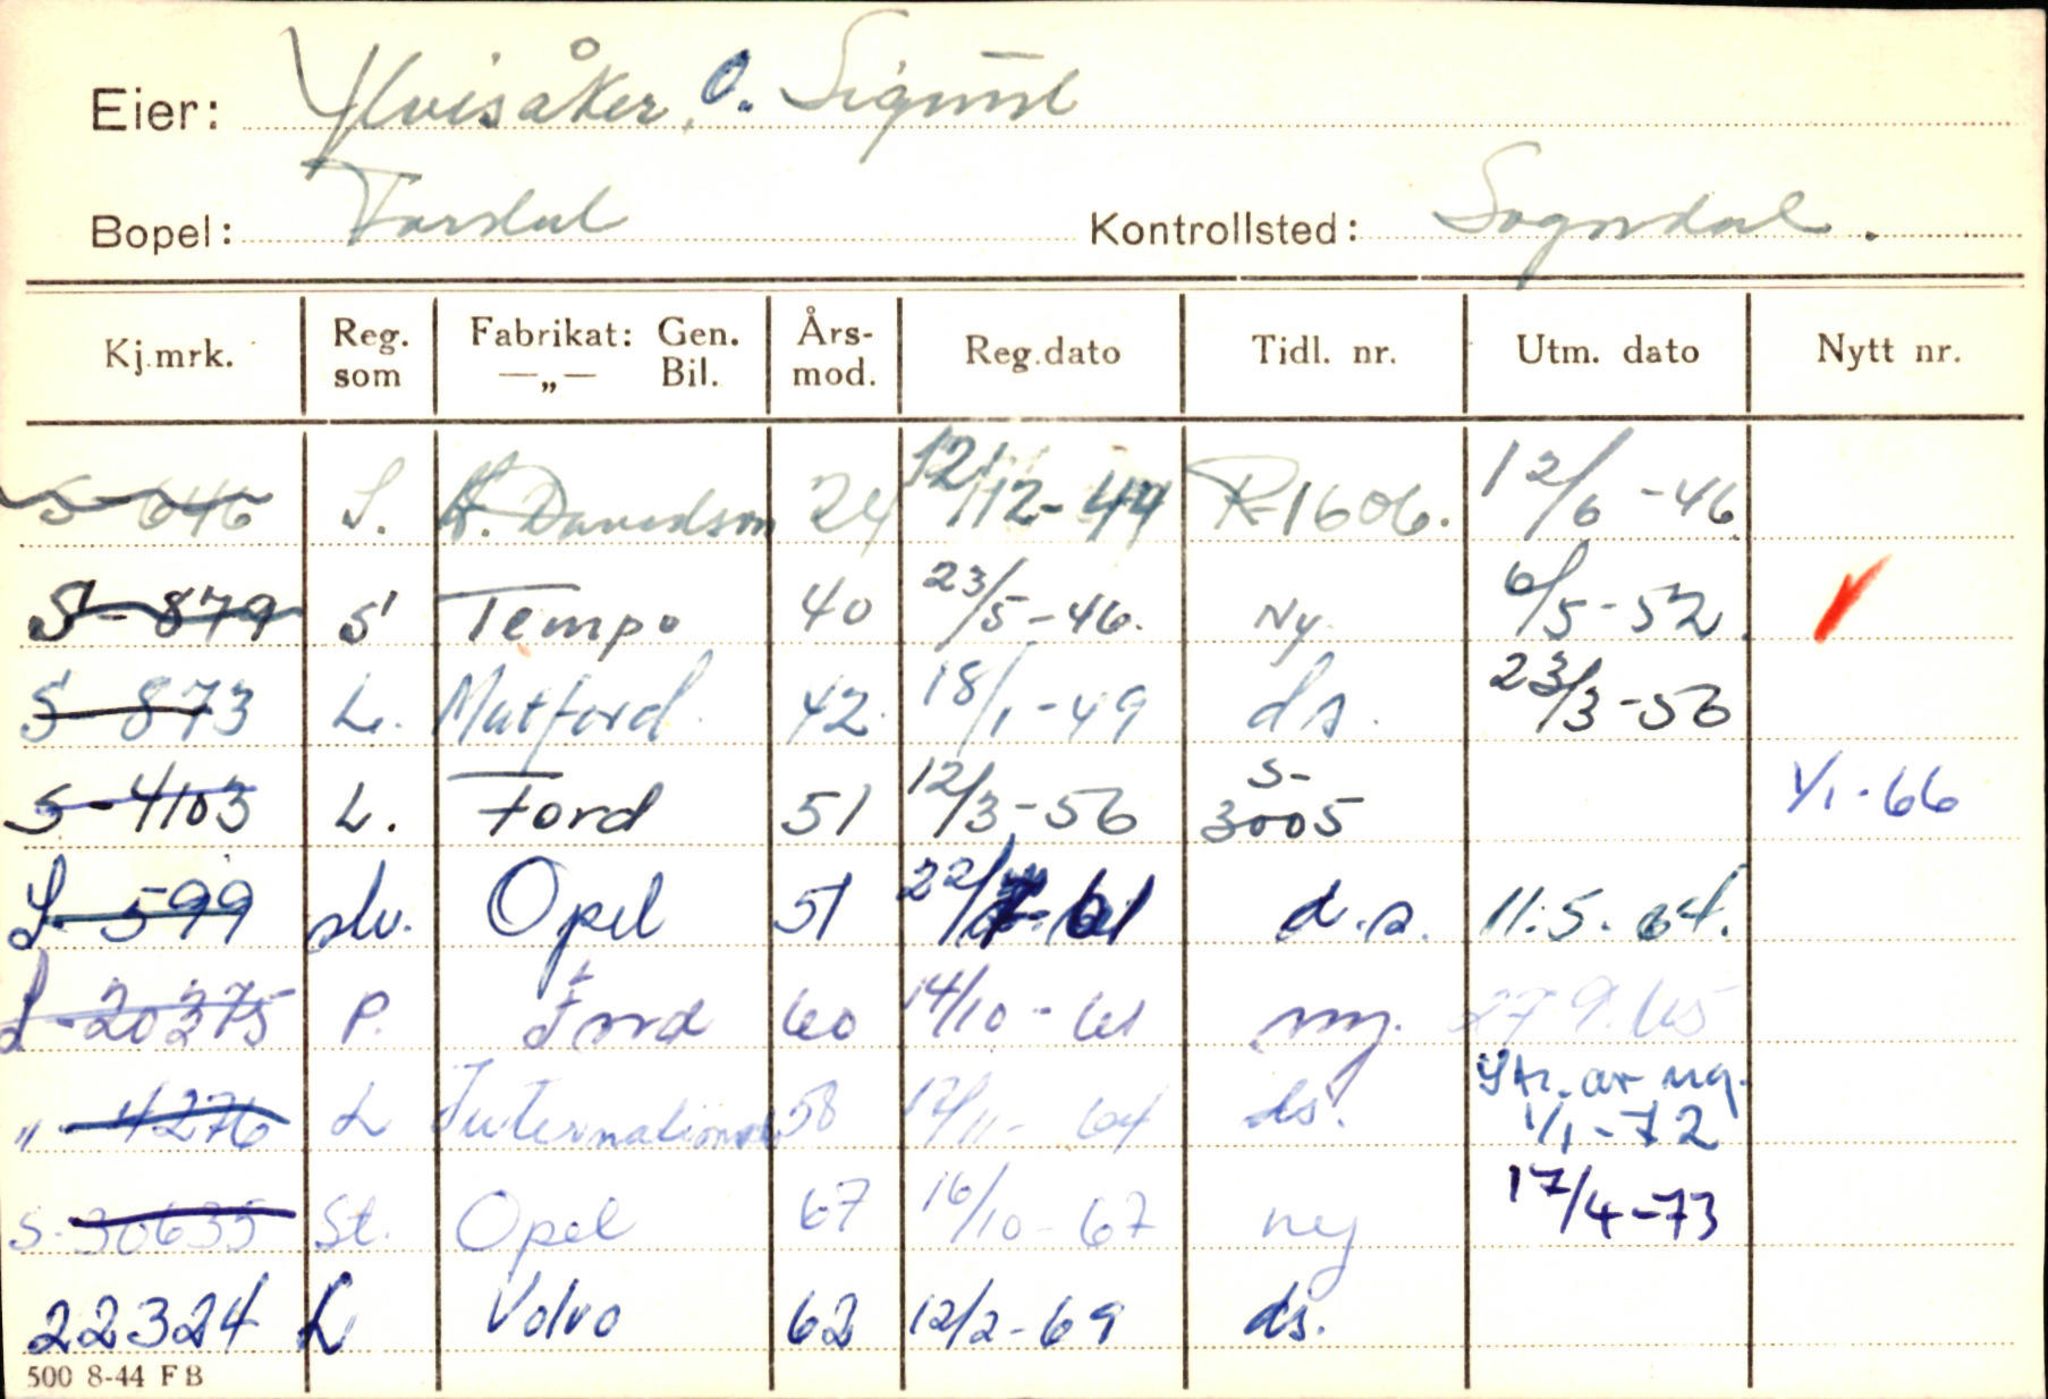 Eier: Ylvisåker, O. Sigurd
Bopel: Kontrollsted: Sogndal.
Kj.mrk. Reg. som Fabrikat: Gen. —„— Bil. Års- mod. Reg.dato Tidl. nr. Utm. dato Nytt nr.
S-646 S. H. Davidson 24 12/12-44 R-1606. 12/6-46
S-879 S Tempo 40 23/5-46. Ny. 6/5-52.
S-873 L. Matford 42. 18/1-49 ds. 23/3-56
S-4103 L. Ford 51 12/3-56 S-3005 1/1-66
S-599 stv. Opel 51 22/7-61 d.s. 11.5.64.
S-20375 P. Ford 60 14/10-61 ny. 27.9.65
" 4276 L International 58 12/11-64 ds. Str. av reg. 1/1-72
S-30635 St. Opel 67 16/10-67 ny 17/4-73
22324 L Volvo 62 12/2-69 ds.
500 8-44 FB